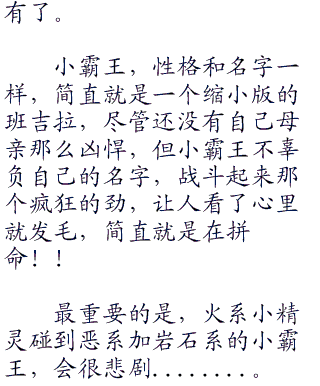 有了。
小霸王，性格和名字一
样，简直就是一个缩小版的
班吉拉，尽管还没有自己母
亲那么凶悍，但小霸王不辜
负自己的名字，战斗起来那
个疯狂的劲，让人看了心里
就发毛，简直就是在拼
命！！
最重要的是，火系小精
灵碰到恶系加岩石系的小霸
王，会很悲剧........。